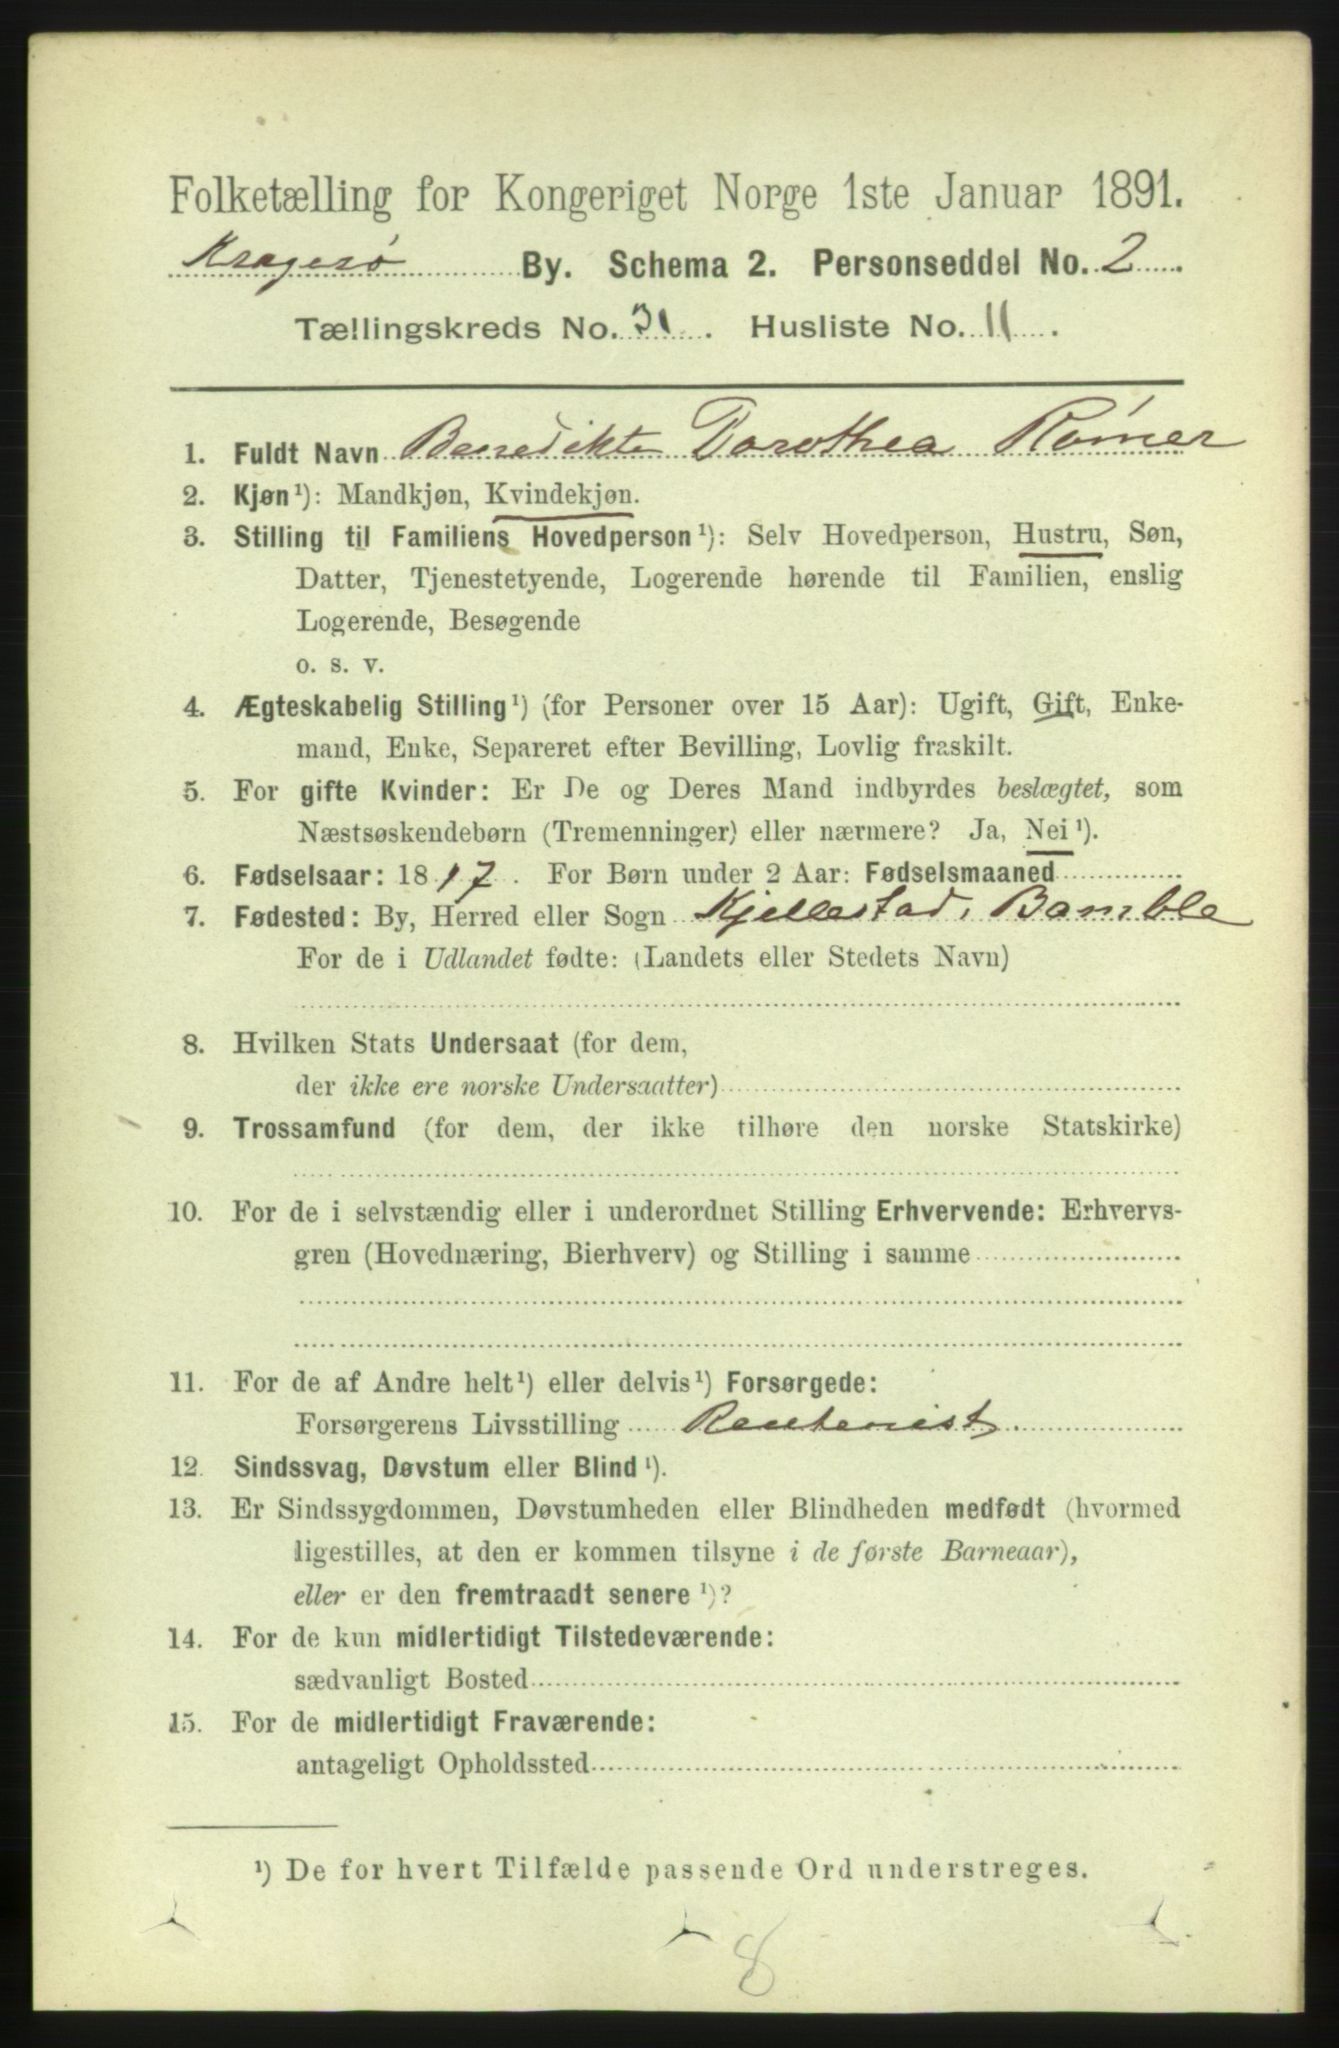 Folketælling for Kongeriget Norge 1ste Januar 1891.
Kragerø By. Schema 2. Personseddel No. 2
Tællingskreds No. 31. Husliste No. 11.
1. Fuldt Navn Benedikte Dorothea Rømer
2. Kjøn¹): Mandkjøn, Kvindekjøn.
3. Stilling til Familiens Hovedperson¹): Selv Hovedperson, Hustru, Søn,
Datter, Tjenestetyende, Logerende hørende til Familien, enslig
Logerende, Besøgende
o. s. v.
4. Ægteskabelig Stilling¹) (for Personer over 15 Aar): Ugift, Gift, Enke-
mand, Enke, Separeret efter Bevilling, Lovlig fraskilt.
5. For gifte Kvinder: Er De og Deres Mand indbyrdes beslægtet, som
Næstsøskendebørn (Tremenninger) eller nærmere? Ja, Nei¹).
6. Fødselsaar: 1817. For Børn under 2 Aar: Fødselsmaaned
7. Fødested: By, Herred eller Sogn Kjellestad, Bamble
For de i Udlandet fødte: (Landets eller Stedets Navn)
8. Hvilken Stats Undersaat (for dem,
der ikke ere norske Undersaatter)
9. Trossamfund (for dem, der ikke tilhøre den norske Statskirke)
10. For de i selvstændig eller i underordnet Stilling Erhvervende: Erhvervs-
gren (Hovednæring, Bierhverv) og Stilling i samme
11. For de af Andre helt¹) eller delvis¹) Forsørgede:
Forsørgerens Livsstilling Rentenist
12. Sindssvag, Døvstum eller Blind¹).
13. Er Sindssygdommen, Døvstumheden eller Blindheden medfødt (hvormed
ligestilles, at den er kommen tilsyne i de første Barneaar),
eller er den fremtraadt senere¹)?
14. For de kun midlertidigt Tilstedeværende:
sædvanligt Bosted
15. For de midlertidigt Fraværende:
antageligt Opholdssted
¹) De for hvert Tilfælde passende Ord understreges.
8